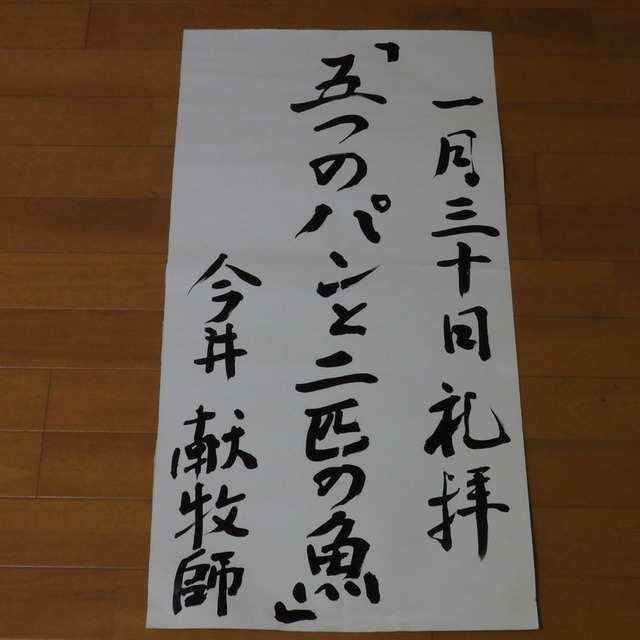 一月三十日礼拝
「五つのパンと二匹の魚」
今井 献牧師